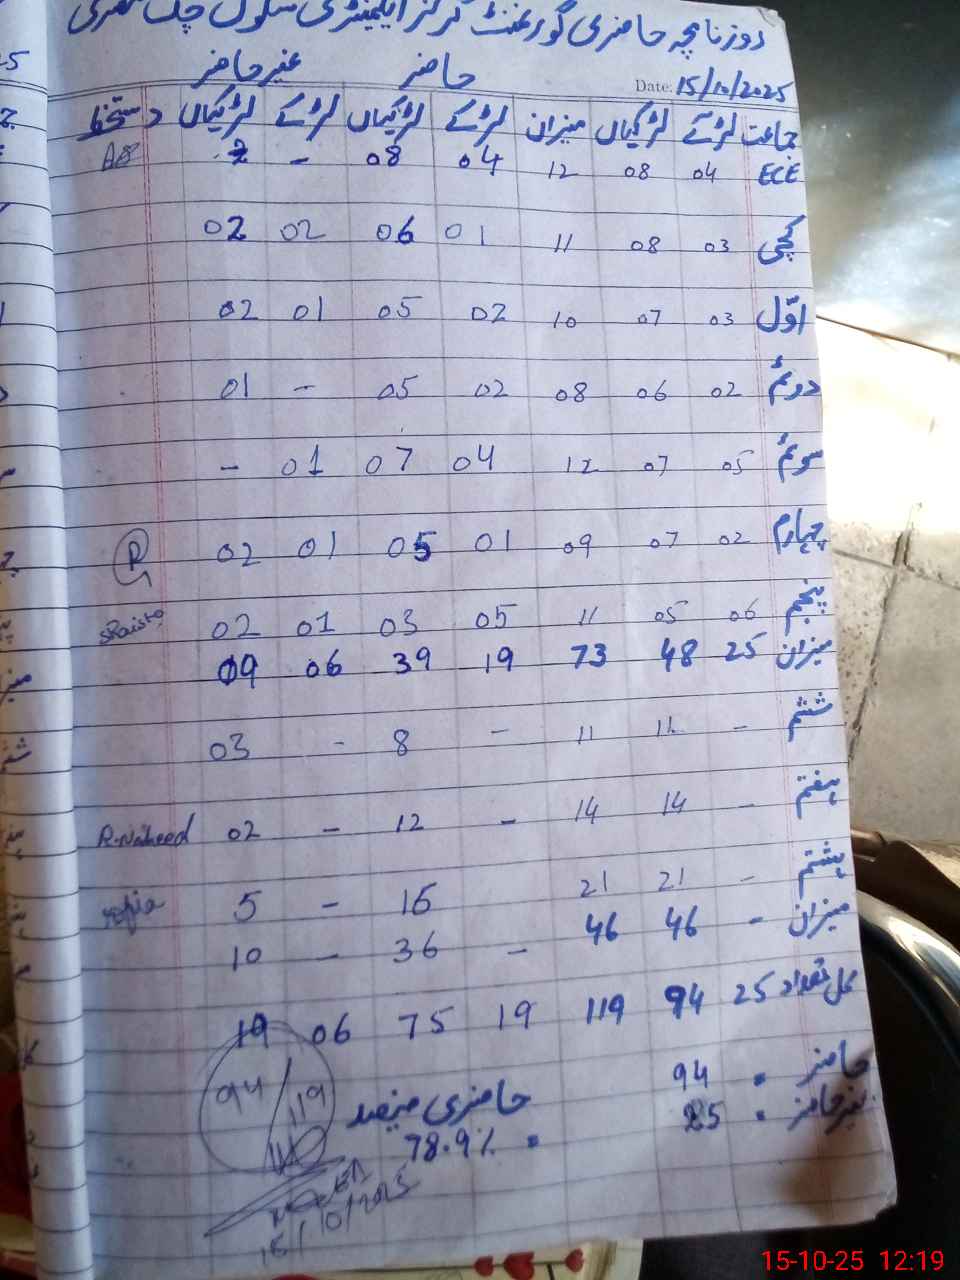 روزنامچہ حاضری گورنمنٹ گرلز ایلیمنٹری سکول چک
Date: 15/10/2025
حاضر غیر حاضر
جماعت لڑکے لڑکیاں میزان لڑکے لڑکیاں لڑکے لڑکیاں دستخط
ECE 04 08 12 04 08 -
کچی 03 08 11 01 06 02 02
اوّل 03 07 10 02 05 01 02
دوئم 02 06 08 02 05 - 01
سوئم 05 07 12 04 07 01 -
چہارم 02 07 09 01 05 01 02 R
پنجم 06 05 11 05 03 01 02
میزان 25 48 73 19 39 06 09
ششم - 11 11 - 8 - 03
ہفتم - 14 14 - 12 - 02 R.Naheed
ہشتم - 21 21 16 - 5
میزان - 46 46 - 36 - 10
کل تعداد 25 94 119 19 75 06 19
حاضر = 94
غیر حاضر = 25
حاضری فیصد = 78.9%
94/119
15/10/2025
15-10-25 12:19